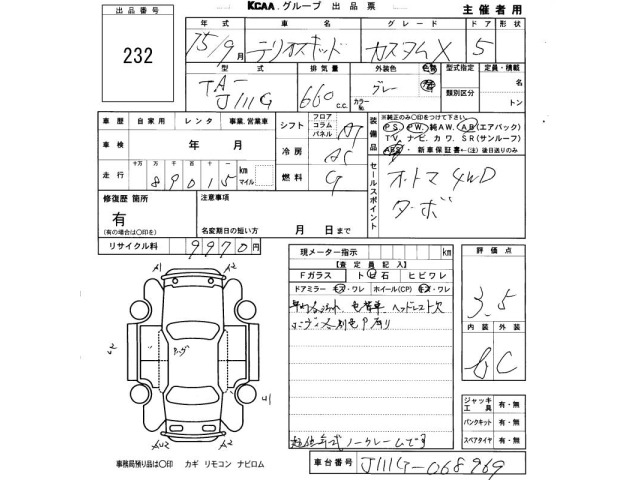 KCAA.グループ 出品票
主催者用
出品番号
232
年式 車名 グレード ドア 形状
15/9月 テリオスキッド カスタムX 5
型式 排気量 外装色 色替 型式指定 定員・積載
TA-
J111G 660 c.c. カラーNo. グレー 類別区分 名
トン
車歴 自家用 レンタ 事業、営業車
シフト フロア コラム パネル AT
装備品
※純正のみ○印をつけて下さい。
PS. PW. 純AW. AB(エアバック)
TV. ナビ. カワ. SR(サンルーフ)
ABS. 新車保証書←(注)後日送りのみ
車検 年 月
冷房 AC
走行 十万 万 千 百 十 km マイル
89015
燃料 G
セールスポイント
オートマ 4WD
ターボ
修復歴 箇所
有
(有の場合は○印を)
注意事項
名変期日の短い方 月 日まで
リサイクル料 9970円
現メーター指示 km
【査定員記入】
Fガラス トビ石 ヒビワレ
ドアミラー キズ・ワレ ホイール(CP) キズ・ワレ
ヘッドレスト欠
ノークレームです
評価点
3.5
内装 外装
C
A1 A2
U1
A2
ジャッキ工具 有・無
パンクキット 有・無
スペアタイヤ 有・無
事務局預り品は○印 カギ リモコン ナビロム
車台番号 J111G-068969